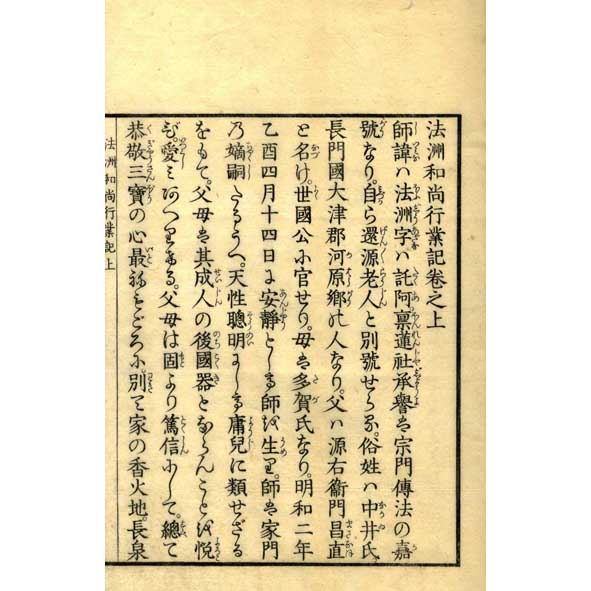 法洲和尚行業記卷之上
師諱ハ法洲字ハ託阿稟蓮社承譽ハ宗門傳法の嘉
號なり。自ら還源老人と別號せらる。俗姓ハ中井氏
長門國大津郡河原鄉の人なり。父ハ源右衞門昌直
と名け。世國公に官せり。母は多賀氏なり。明和二年
乙酉四月十四日に安靜として師を生り。師は家門
乃嫡嗣たるうへ。天性聰明にして庸兒に類せざる
をもて。父母は其成人の後國器とならんことを悅
び。愛しみあへりける。父母は固より篤信にして。總て
恭敬三寶の心最ねもごろに。別て家の香火地。長泉
法洲和尚行業記上